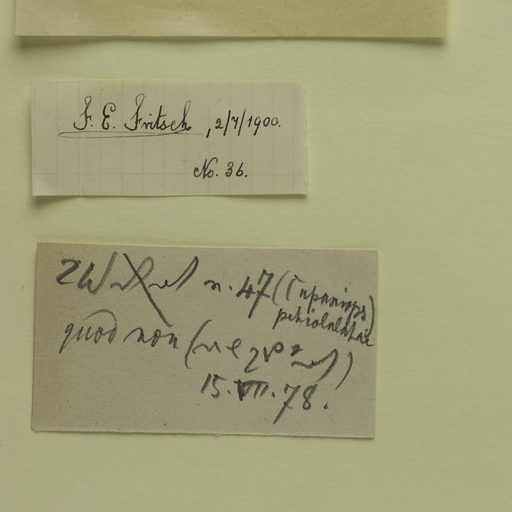 F. E. Fritsch, 2/7/1900.
No. 36.
n. 47 (Cupaniops
petiolulatae
quod non
15.VII.78.